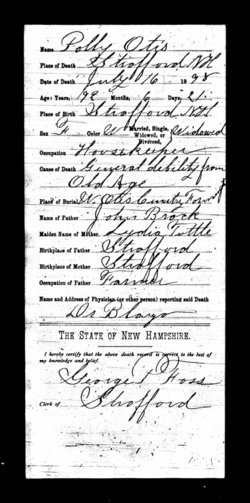 Name, Polly Otis
Place of Death Strafford NH
Date of Death July 16 1898
Age: Years, 92 Months, 6 Days, 21
Place of Birth Strafford NH
Sex F Color W Married, Single, Widowed or Divorced, Widowed
Occupation Housekeeper
Cause of Death General debility from
Old Age
Place of Burial Otis Farm
Name of Father John Brock
Maiden Name of Mother, Lydia Tuttle
Birthplace of Father Strafford
Birthplace of Mother Strafford
Occupation of Father Farmer
Name and Address of Physician (or other person) reporting said Death
Dr
THE STATE OF NEW HAMPSHIRE.
I hereby certify that the above death record is correct to the best of
my knowledge and belief.
George Foss
Clerk of Strafford